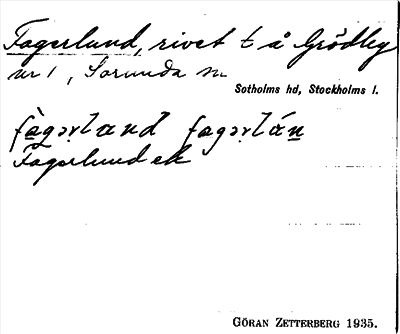 Fagerlund, rivet t å Grödby
nr 1, Sorunda sn
Sotholms hd, Stockholms l.
fàgərland fagərlán
Fagerlund ek
GÖRAN ZETTERBERG 1935.